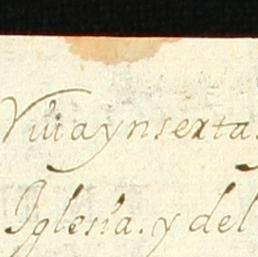 Viuia ynserta
Iglesia. y del